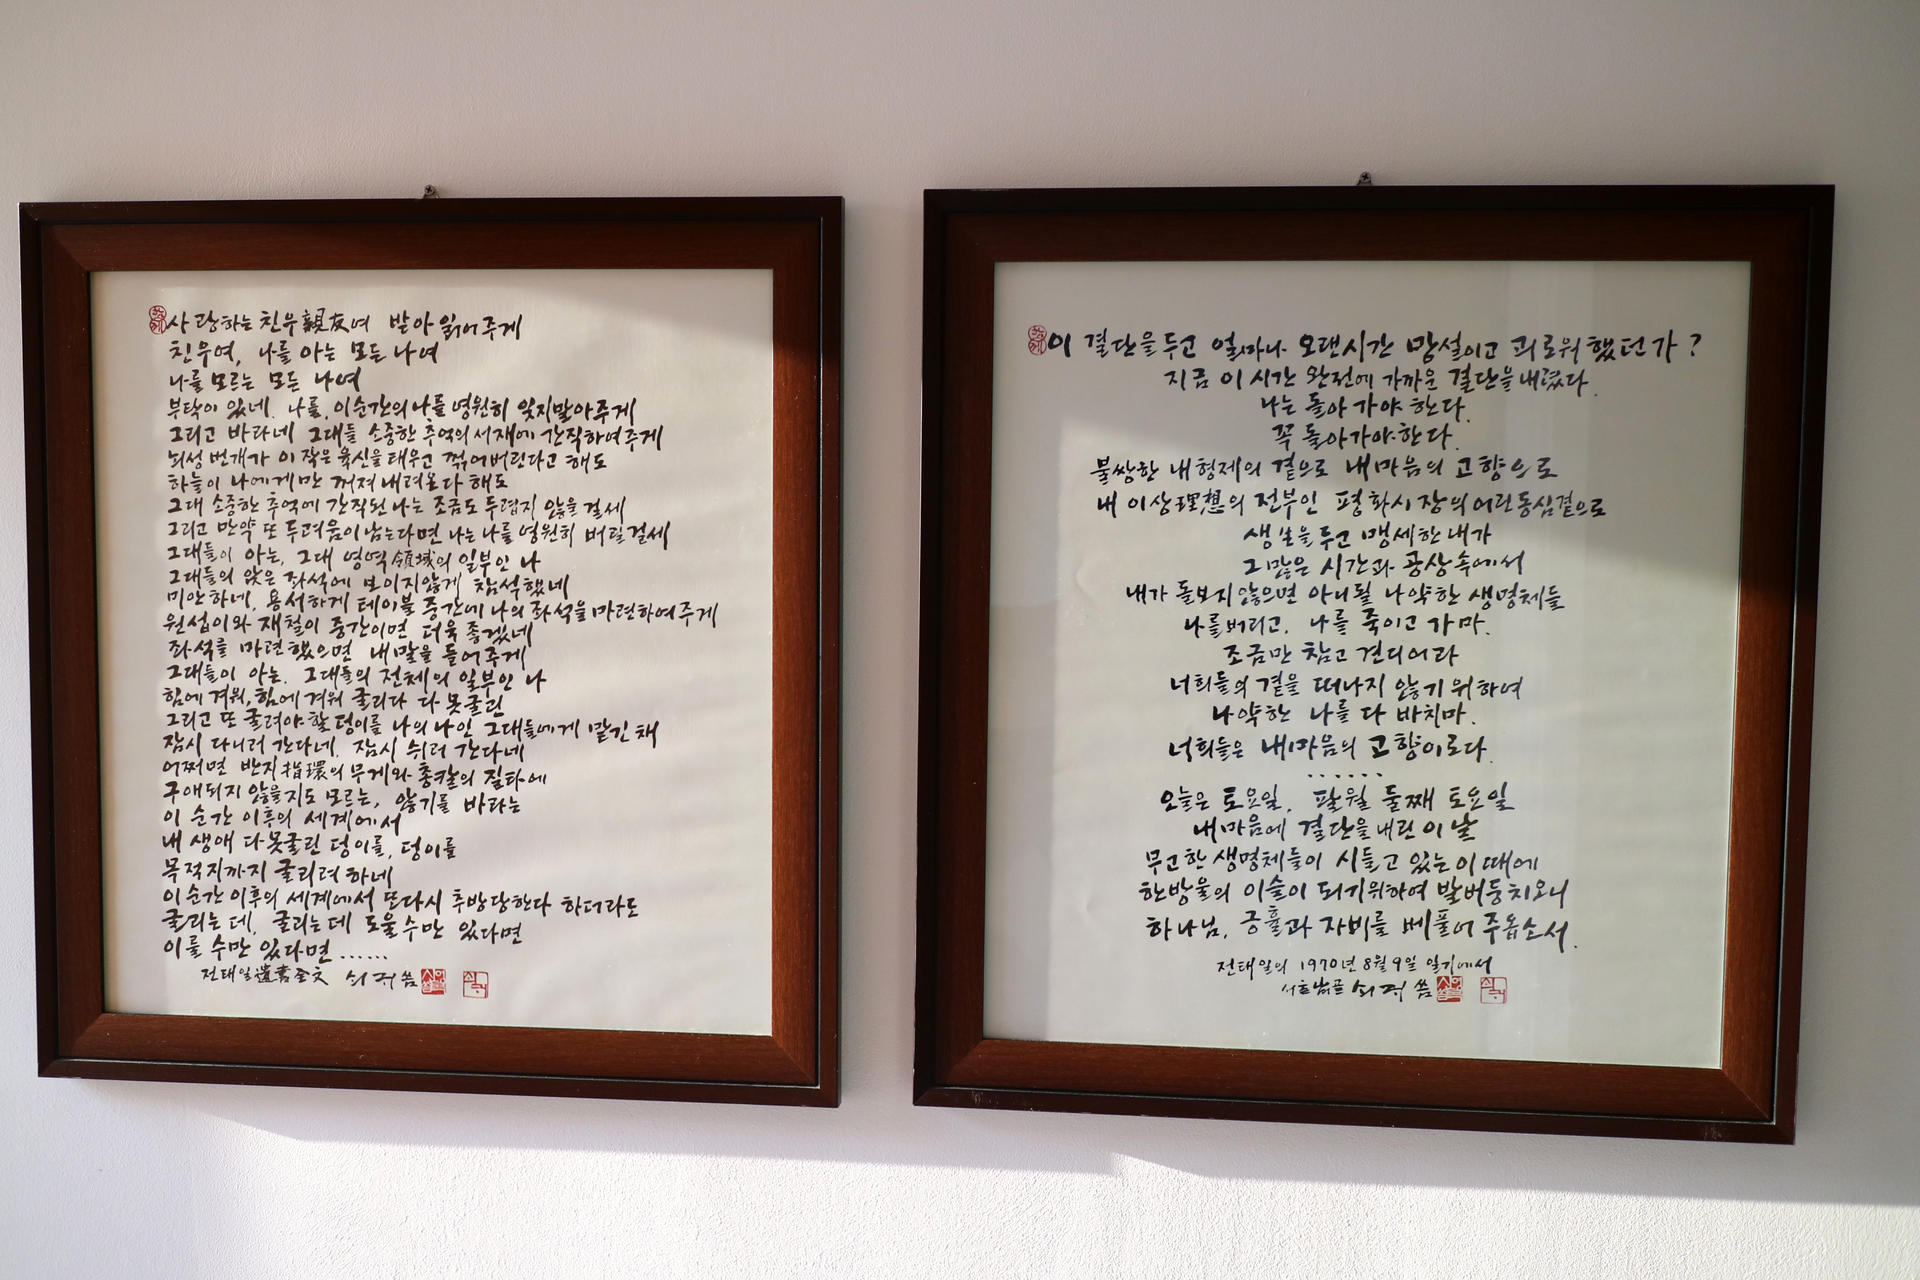 사랑하는 친우親友여 받아 읽어주게
친우여, 나를 아는 모든 나여
나를 모르는 모든 나여
부탁이 있네. 나를, 이순간의 나를 영원히 잊지말아주게
그리고 바라네 그대들 소중한 추억의 서재에 간직하여주게
뇌성 번개가 이 작은 육신을 태우고 꺾어버린다고 해도
하늘이 나에게만 꺼져 내려온다 해도
그대 소중한 추억에 간직된 나는 조금도 두렵지 않을 걸세
그리고 만약 또 두려움이 남는다면 나는 나를 영원히 버릴 걸세
그대들이 아는, 그대 영역領域의 일부인 나
그대들의 앉은 좌석에 보이지않게 참석했네
미안하네. 용서하게 테이블 중간에 나의 좌석을 마련하여주게
원섭이와 재철이 중간이면 더욱 좋겠네
좌석을 마련했으면 내말을 들어주게
그대들이 아는. 그대들의 전체의 일부인 나
힘에 겨워, 힘에 겨워 굴리다 다 못굴린
그리고 또 굴려야 할 덩이를 나의 나인 그대들에게 맡긴 채
잠시 다니러 간다네. 잠시 쉬러 간다네
어쩌면 반지指環의 무게와 총칼의 질타에
구애되지 않을지도 모르는, 않기를 바라는
이 순간 이후의 세계에서
내 생애 다 못굴린 덩이를, 덩이를
목적지까지 굴리려 하네
이 순간 이후의 세계에서 또다시 추방당한다 하더라도
굴리는데, 굴리는데 도울수만 있다면
이룰 수만 있다면......
전태일遺書全文 쇠귀 씀
이 결단을 두고 얼마나 오랜시간 망설이고 괴로워했던가?
지금 이 시간 완전에 가까운 결단을 내렸다.
나는 돌아가야 한다.
꼭 돌아가야 한다.
불쌍한 내 형제의 곁으로 내마음의 고향으로
내 이상理想의 전부인 평화시장의 어린동심곁으로
생生을 두고 맹세한 내가
그 많은 시간과 공상 속에서
내가 돌보지 않으면 아니될 나약한 생명체들
나를버리고. 나를 죽이고 가마.
조금만 참고 견디어라
너희들의 곁을 떠나지 않기 위하여
나약한 나를 다 바치마.
너희들은 내마음의 고향이로다.
......
오늘은 토요일. 팔월 둘째 토요일
내마음에 결단을 내린 이 날
무고한 생명체들이 시들고 있는 이 때에
한방울의 이슬이 되기위하여 발버둥치오니
하나님. 긍휼과 자비를 베풀어 주옵소서.
전태일의 1970년 8월 9일 일기에서
쇠귀 씀